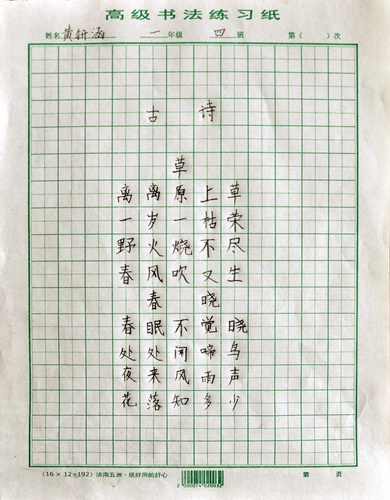 高级书法练习纸
姓名 一年级 四班 第( )次
古 诗
草
离离原上草
一岁一枯荣
野火烧不尽
春风吹又生
春 晓
春眠不觉晓
处处闻啼鸟
夜来风雨声
花落知多少
(16×12=192) 济南五洲·纸好用的舒心 第 页